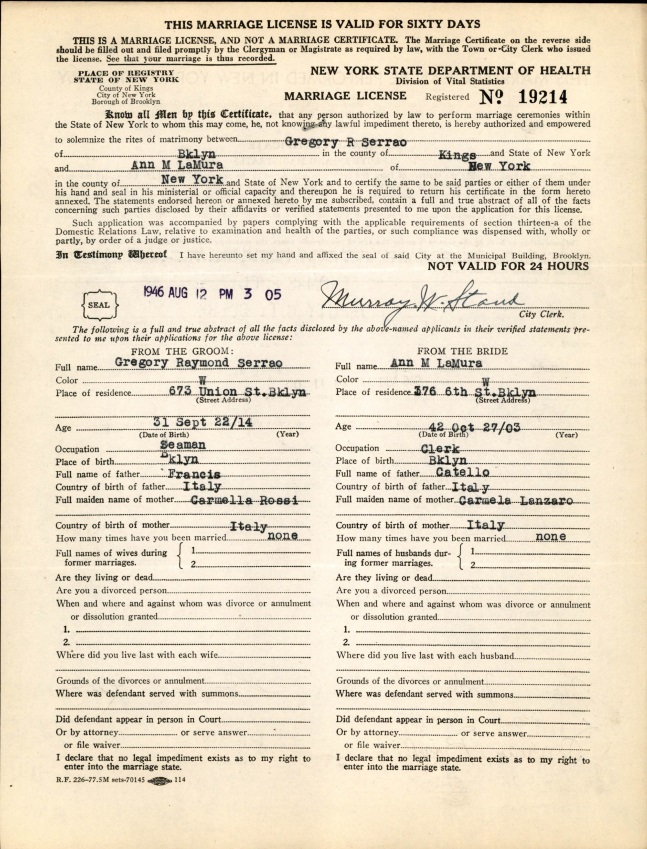 THIS MARRIAGE LICENSE IS VALID FOR SIXTY DAYS
THIS IS A MARRIAGE LICENSE, AND NOT A MARRIAGE CERTIFICATE. The Marriage Certificate on the reverse side
should be filled out and filed promptly by the Clergyman or Magistrate as required by law, with the Town or City Clerk who issued
the license. See that your marriage is thus recorded.
PLACE OF REGISTRY
STATE OF NEW YORK
County of Kings
City of New York
Borough of Brooklyn
NEW YORK STATE DEPARTMENT OF HEALTH
Division of Vital Statistics
MARRIAGE LICENSE Registered No. 19214
Know all Men by this Certificate, that any person authorized by law to perform marriage ceremonies within
the State of New York to whom this may come, he, not knowing any lawful impediment thereto, is hereby authorized and empowered
to solemnize the rites of matrimony between Gregory R Serrao
of Bklyn in the county of Kings and State of New York
and Ann M LaMura of New York
in the county of New York and State of New York and to certify the same to be said parties or either of them under
his hand and seal in his ministerial or official capacity and thereupon he is required to return his certificate in the form hereto
annexed. The statements endorsed hereon or annexed hereto by me subscribed, contain a full and true abstract of all of the facts
concerning such parties disclosed by their affidavits or verified statements presented to me upon the application for this license.
Such application was accompanied by papers complying with the applicable requirements of section thirteen-a of the
Domestic Relations Law, relative to examination and health of the parties, or such compliance was dispensed with, wholly or
partly, by order of a judge or justice.
In Testimony Whereof I have hereunto set my hand and affixed the seal of said City at the Municipal Building, Brooklyn.
NOT VALID FOR 24 HOURS
SEAL
1946 AUG 12 PM 3 05
Murray W. Stand
City Clerk.
The following is a full and true abstract of all the facts disclosed by the above-named applicants in their verified statements pre-
sented to me upon their applications for the above license:
FROM THE GROOM:
Full name Gregory Raymond Serrao
Color W
Place of residence 673 Union St.Bklyn
(Street Address)
Age 31 Sept 22/14
(Date of Birth) (Year)
Occupation Seaman
Place of birth Bklyn
Full name of father Francis
Country of birth of father Italy
Full maiden name of mother Carmella Rossi
Country of birth of mother Italy
How many times have you been married none
Full names of wives during
former marriages.
1
2
Are they living or dead
Are you a divorced person
When and where and against whom was divorce or annulment
or dissolution granted
1.
2.
Where did you live last with each wife
Grounds of the divorces or annulment
Where was defendant served with summons
Did defendant appear in person in Court
Or by attorney or serve answer
or file waiver
I declare that no legal impediment exists as to my right to
enter into the marriage state.
R.F. 226-77.5M sets-70145 114
FROM THE BRIDE
Full name Ann M LaMura
Color W
Place of residence 376 6th St.Bklyn
(Street Address)
Age 42 Oct 27/03
(Date of Birth) (Year)
Occupation Clerk
Place of birth Bklyn
Full name of father Catello
Country of birth of father Italy
Full maiden name of mother Carmela Lanzaro
Country of birth of mother Italy
How many times have you been married none
Full names of husbands dur-
ing former marriages.
1
2
Are they living or dead
Are you a divorced person
When and where and against whom was divorce or annulment
or dissolution granted
1.
2.
Where did you live last with each husband
Grounds of the divorces or annulment
Where was defendant served with summons
Did defendant appear in person in Court
Or by attorney or serve answer
or file waiver
I declare that no legal impediment exists as to my right to
enter into the marriage state.